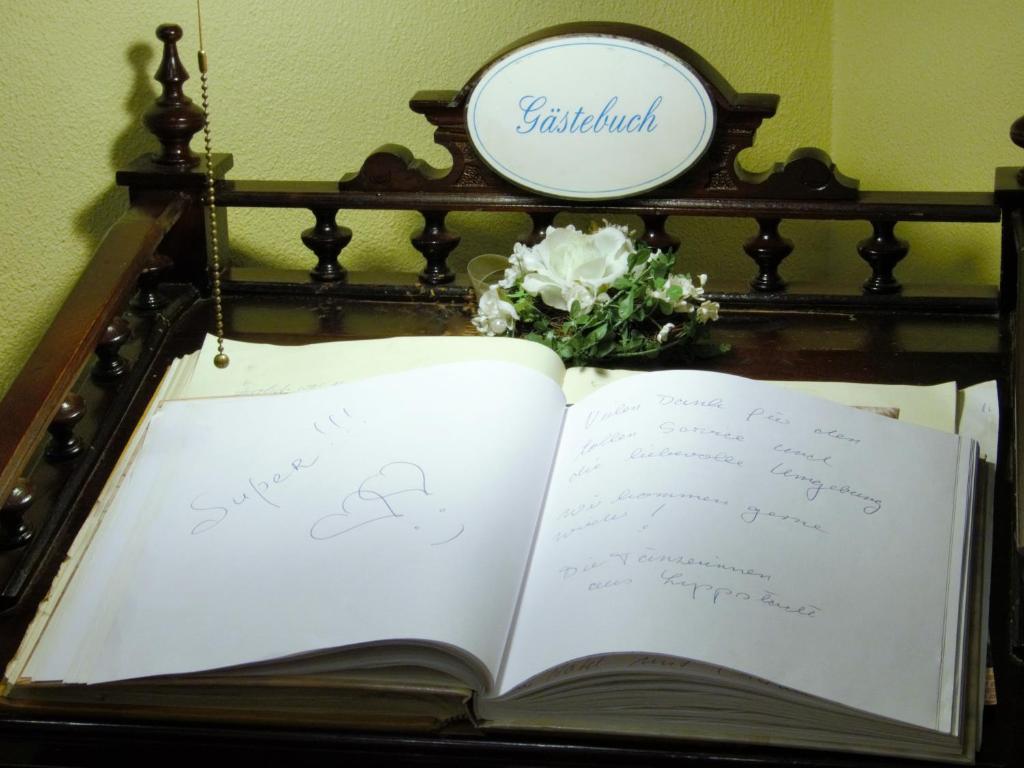 Gästebuch
Super !!!
Vielen Dank für den
tollen Service und
die liebevolle Umgebung
wir kommen gerne
wieder!
Die Tänzerinnen
aus Lippstadt